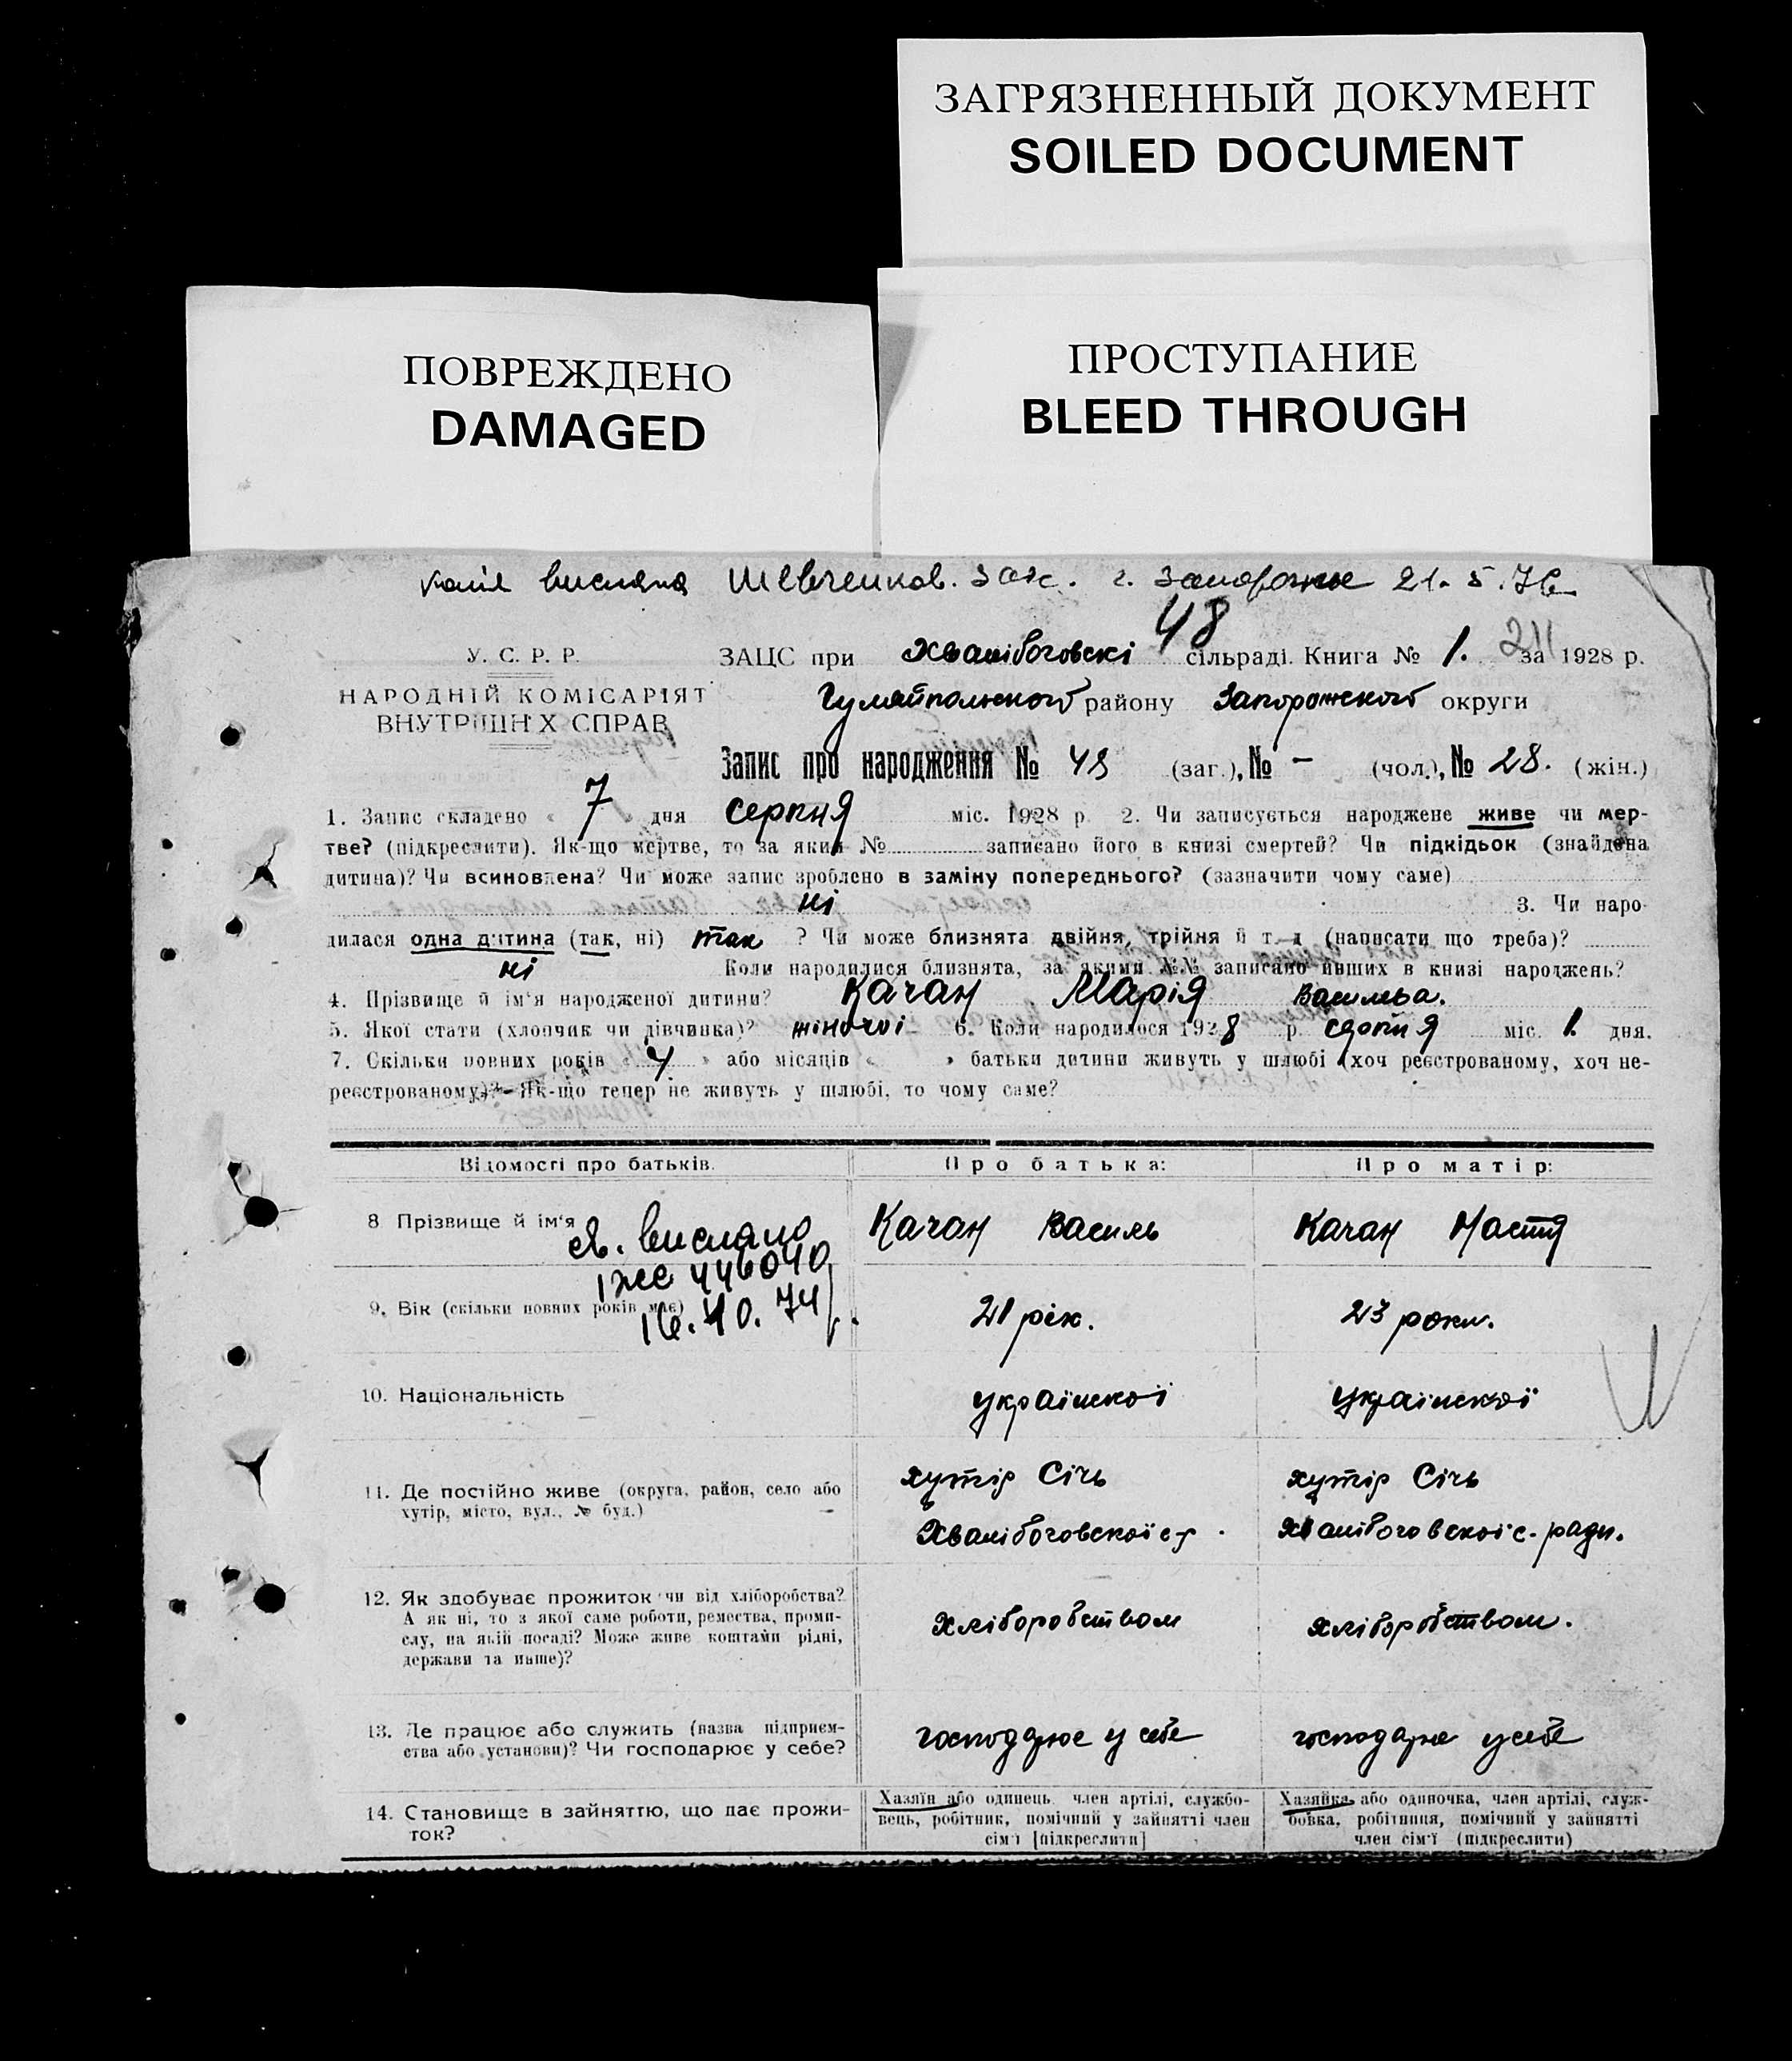 ЗАГРЯЗНЕННЫЙ ДОКУМЕНТ
SOILED DOCUMENT
ПОВРЕЖДЕНО
DAMAGED
ПРОСТУПАНИЕ
BLEED THROUGH
копія вислана Шевченков. Загс. г. Запорожье 21.5.76
48
211
У. С. Р. Р.
НАРОДНІЙ КОМІСАРІЯТ
ВНУТРІШНІХ СПРАВ
ЗАЦС при Хвалібоговскі сільраді. Книга № 1. за 1928 р.
Гуляйпольского району Запорожского округи
Запис про народження № 48 (заг.), № – (чол.), № 28. (жін.)
1. Запис складено « 7 » дня серпня міс. 1928 р. 2. Чи записується народжене живе чи мер-
тве? (підкреслити). Як-що мертве, то за яким № записано його в книзі смертей? Чи підкідьок (знайдена
дитина)? Чи всиновлена? Чи може запис зроблено в заміну попереднього? (зазначити чому саме)
ні 3. Чи наро-
дилася одна дитина (так, ні) так ? Чи може близнята двійня, трійня й т. д (написати що треба)?
ні Коли народилися близнята, за якими №№ записано инших в книзі народжень?
4. Прізвище й ім'я народженої дитини? Качан Марія Васильва.
5. Якої стати (хлопчик чи дівчинка)? жіночоі 6. Коли народилося 1928 р. серпня міс. 1. дня.
7. Скільки повних років « 4 » або місяців « » батьки дитини живуть у шлюбі (хоч реєстрованому, хоч не-
реєстрованому)? Як-що тепер не живуть у шлюбі, то чому саме?
Відомості про батьків. Про батька: Про матір:
8 Прізвище й ім'я Качан Василь Качан Настя
св. вислано
446040
16.10.74 г.
9. Вік (скільки повних років має) 21 рік. 23 роки.
10. Національність українскоі українскоі
11. Де постійно живе (округа, район, село або
хутір, місто, вул., № буд.)
хутір Січь хутір Січь
Хвалібоговскоі с р. Хвалібоговскоі с. ради.
12. Як здобуває прожиток чи від хліборобства?
А як ні, то з якої саме роботи, ремества, проми-
слу, на якій посаді? Може живе коштами рідні,
держави та инше)?
хліборобством хліборобством.
13. Де працює або служить (назва підприєм-
ства або установи)? Чи господарює у себе?
господарює у себе господарює у себе
14. Становище в зайняттю, що дає прожи-
ток?
Хазяїн або одинець член артілі, службо-
вець, робітник, помічний у зайнятті член
сім'ї [підкреслити]
Хазяйка або одиночка, член артілі, служ-
бовка, робітниця, помічний у зайнятті
член сім'ї (підкреслити)